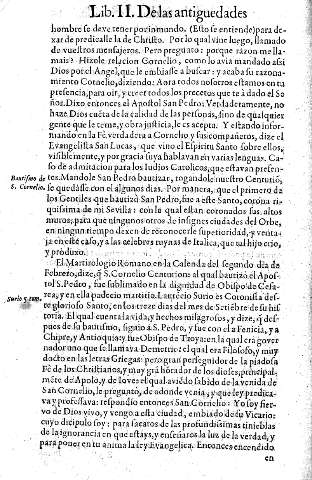 Lib. II. De las antiguedades
hombre se deve tener por inmundo. (Esto se entiende) para de-
xar de predicalle la de Christo. Por lo qual vine luego, llamado
de vuestros mensajeros. Pero pregunto: porque razon me lla-
mais? Hizole relacion Cornelio, como lo avia mandado assi
Dios por el Angel, que le embiasse a buscar: y acaba su razona-
miento Cornelio, diziendo: Aora todos nosotros estamos en tu
presencia, para oir, y creer todos los precetos que te à dado el Se
ñor. Dixo entonces el Apostol San Pedro: Verdaderamente, no
haze Dios cuēta de la calidad de las personas, sino de qualquier
gente que le tema, y obra justicia, le es acepta. Y estando infor-
mando en la Fè verdadera a Cornelio y sus compañeros, dize el
Evangelista San Lucas, que vino el Espiritu Santo sobre ellos,
visiblemente, y por gracia suya hablavan en varias lenguas. Ca-
so de admiracion para los Iudios Catolicos, que estavan presen-
Bautismo de
S. Cornelio.
tes. Mandole San Pedro bautizar, rogandole nuestro Centuriõ,
se quedasse con el algunos dias. Por manera, que el primero de
los Gentiles que bautizò San Pedro, fue a este Santo, corona ri-
quissima de mi Sevilla: con la qual estan coronados sus altos
muros; para que ningunos otros de insignes ciudades del Orbe,
en ningun tiempo dexen de reconocerle superioridad, y venta-
ja en este caso, y a las celebres ruynas de Italica, que tal hijo criò,
y produxo.
El Martirologio Romano en la Calenda del segundo dia de
Febrero, dize, q̃ S. Cornelio Centurion: al qual bautizò el Apos-
tol S. Pedro, fue sublimado en la dignidad de Obispo de Cesa-
Surio 5. tom.
rea, y en ella padecio martirio. Laurecio Surio es Coronista des-
te glorioso Santo, en los treze dias del mes de Setiēbre de su his-
toria. El qual cuenta la vida, y hechos milagrosos, y dize, q̃ des-
pues de su bautismo, siguio à S. Pedro, y fue con el a Fenicia, y a
Chipre, y Antioquia; y fue Obispo de Troya: en la qual era go-
nador uno que se llamava Demetrio: el qual era Filosofo, y muy
docto en las letras Griegas: pero gran perseguidor de la piadosa
Fè de los Christianos, y muy grā hōrador de los dioses, principal-
mēte de Apolo, y de Iove: el qual aviēdo sabido de la venida de
San Cornelio, le preguntò, de adonde venia, y que ley predica-
va y professava: respondio entonces San Cornelio: Yo soy sier-
vo de Dios vivo, y vengo a esta ciudad, embiado de su Vicario:
cuyo dicipulo soy: para sacaros de las profundissimas tinieblas
de la ignorancia en que estays, y enseñaros la luz de la verdad, y
para poner en tu anima la ley Evangelica. Entonces encendido
en